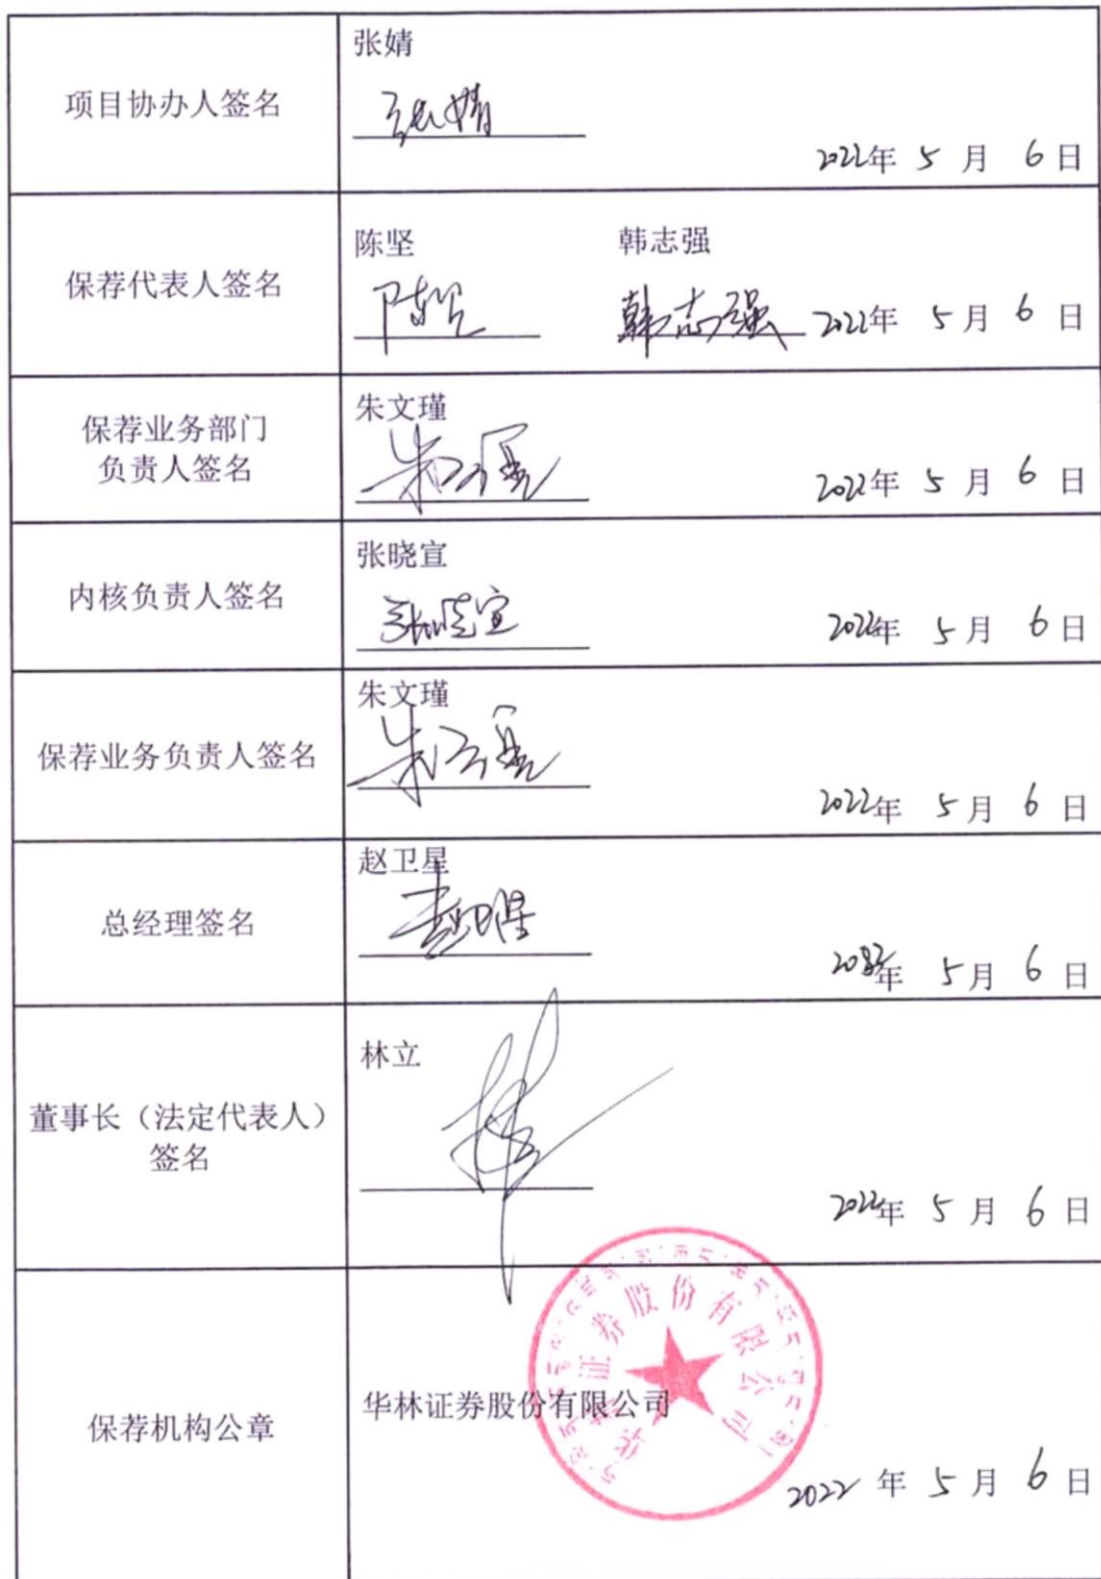 项目协办人签名
张婧
张婧
2022年 5 月 6 日
保荐代表人签名
陈坚 韩志强
陈坚 韩志强 2022年 5 月 6 日
保荐业务部门
负责人签名
朱文瑾
朱文瑾
2022年 5 月 6 日
内核负责人签名
张晓宣
张晓宣
2022年 5 月 6 日
保荐业务负责人签名
朱文瑾
朱文瑾
2022年 5 月 6 日
总经理签名
赵卫星
赵卫星
2022年 5 月 6 日
董事长（法定代表人）
签名
林立
2022年 5 月 6 日
保荐机构公章
华林证券股份有限公司
华林证券股份有限公司
2022 年 5 月 6 日